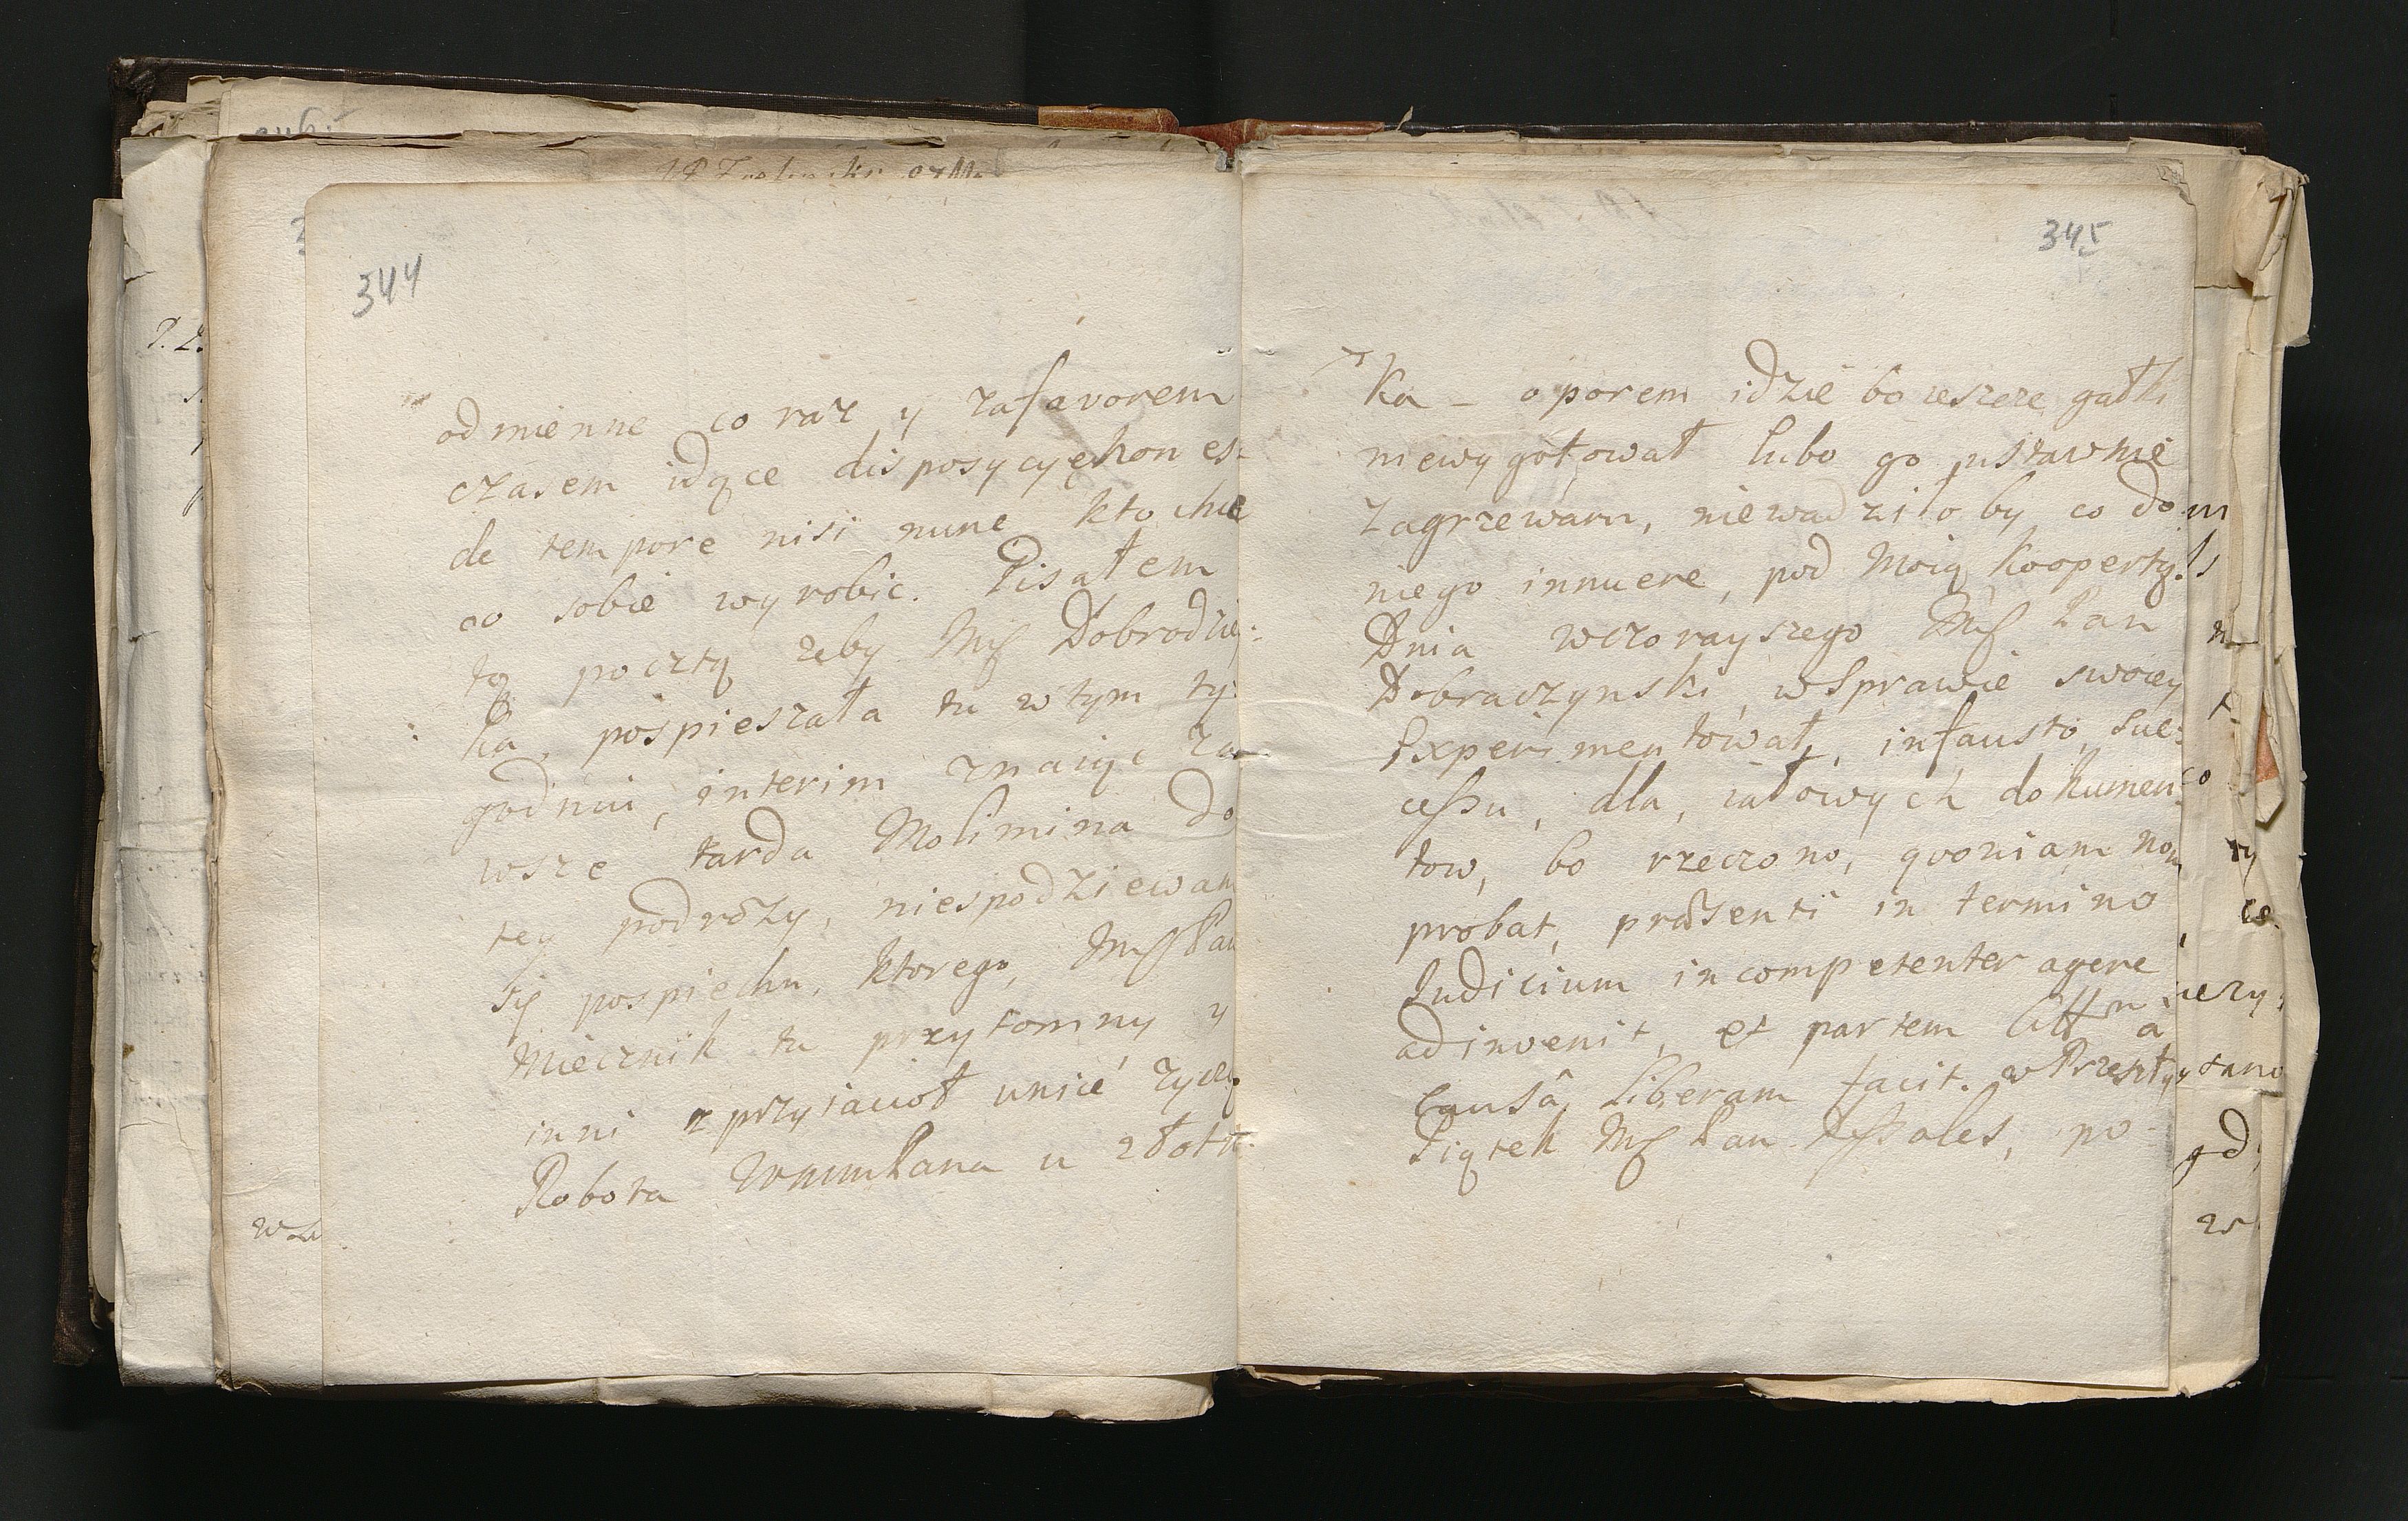 344
odmienne co raz y za favorem
czasem idące disposycyę hones-
de tempore nisi nunc kto chce
co sobie wyrobic. Pisałem
tą pocztą zeby Dobrodziey:
ka, pospieszała tu w tym ty:
godniu, interim znaiąc za
wsze tarda Molimina do
tey podrozy, niespodziewam
się pospiechu, ktorego, Pan
Miecznik tu przytomny y
inni z przyiacioł unice zyczą
Robota u złotn
345
Ka - oporem idzie bo ieszcze gałki
niewygotował lubo go ustawnie
zagrzewam, niewadziło by co do
niego innuere, pod moią koopertą.
Dnia wczorayszego Pan
Dobraczynski, w Sprawie swoiey
Experimentował, infausto suc:
cessu, dla, iałowych dokumen:
tow, bo rzeczono, qvoniam non
probat, præsenti in termino
Iudicium incompetenter agere
adinvenit, et partem a
Causâ liberam facit. w Przeszły
Piątek Pan po-